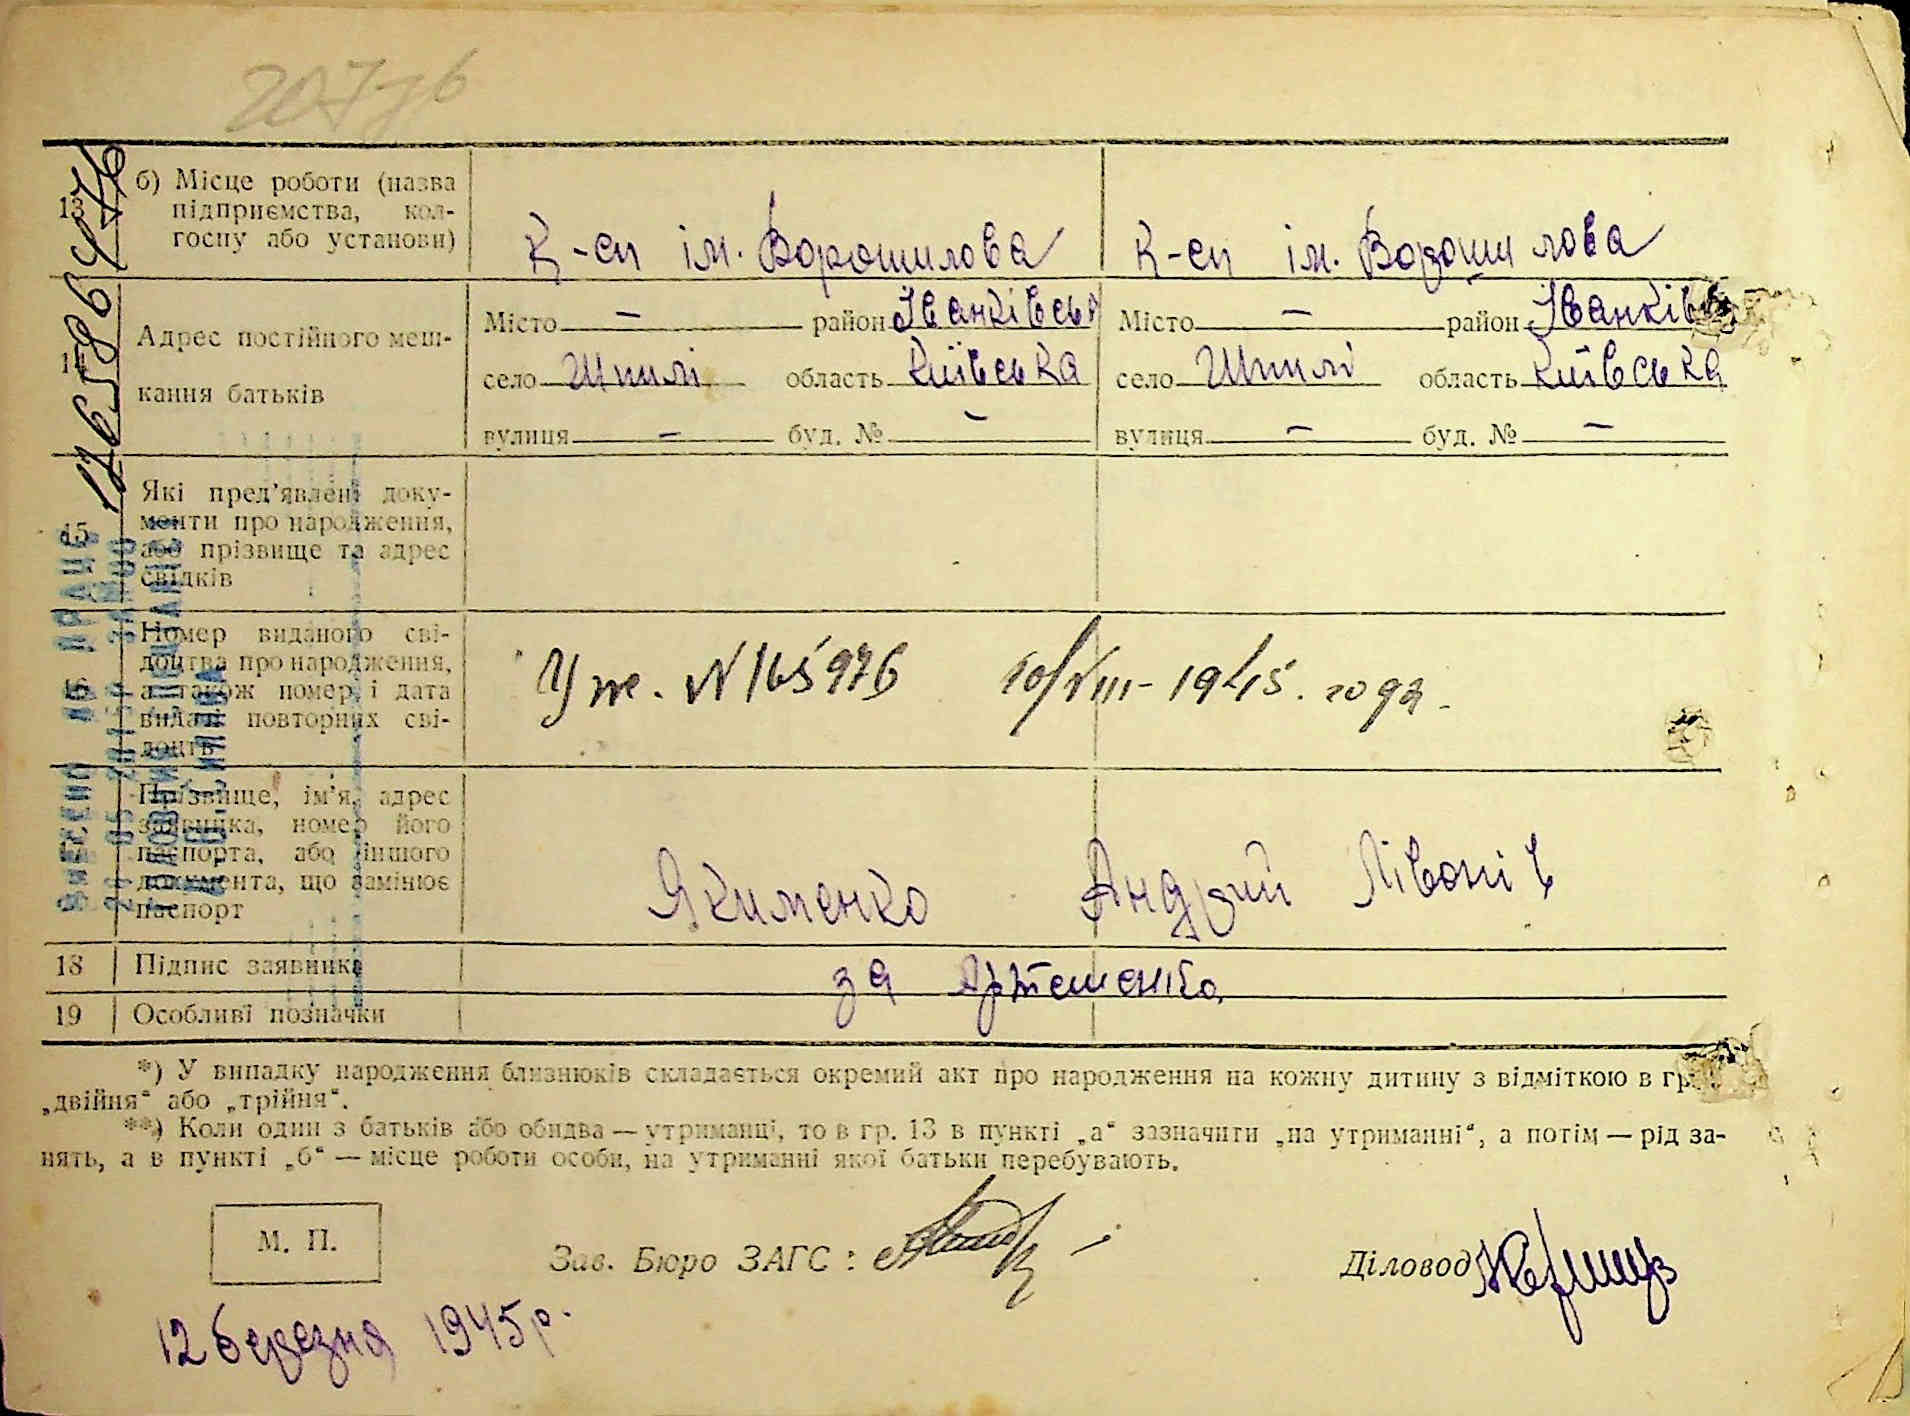 13 б) Місце роботи (назва
підприємства, кол-
госпу або установи)
К-сп ім. Ворошилова К-сп ім. Ворошилова
Адрес постійного меш-
кання батьків
Місто — район Іванківськ Місто — район Іванків
село Шпилі область Київська село Шпилі область Київська
вулиця — буд. № — вулиця — буд. № —
15 Які пред’явлені доку-
менти про народження,
або прізвище та адрес
свідків
Номер виданого сві-
доцтва про народження,
а також номер і дата
видачі повторних сві-
доцтв
№ 165976 10/VIII-1945. года.
Прізвище, ім’я, адрес
заявника, номер його
паспорта, або іншого
документа, що замінює
паспорт
Якименко Андрій
18 Підпис заявника
за Артеменко
19 Особливі позначки
*) У випадку народження близнюків складається окремий акт про народження на кожну дитину з відміткою в гр.
„двійня“ або „трійня“.
**) Коли один з батьків або обидва — утриманці, то в гр. 13 в пункті „а“ зазначити „на утриманні“, а потім — рід за-
нять, а в пункті „б“ — місце роботи особи, на утриманні якої батьки перебувають.
М. П.
Зав. Бюро ЗАГС :
Діловод
12 березня 1945 р.